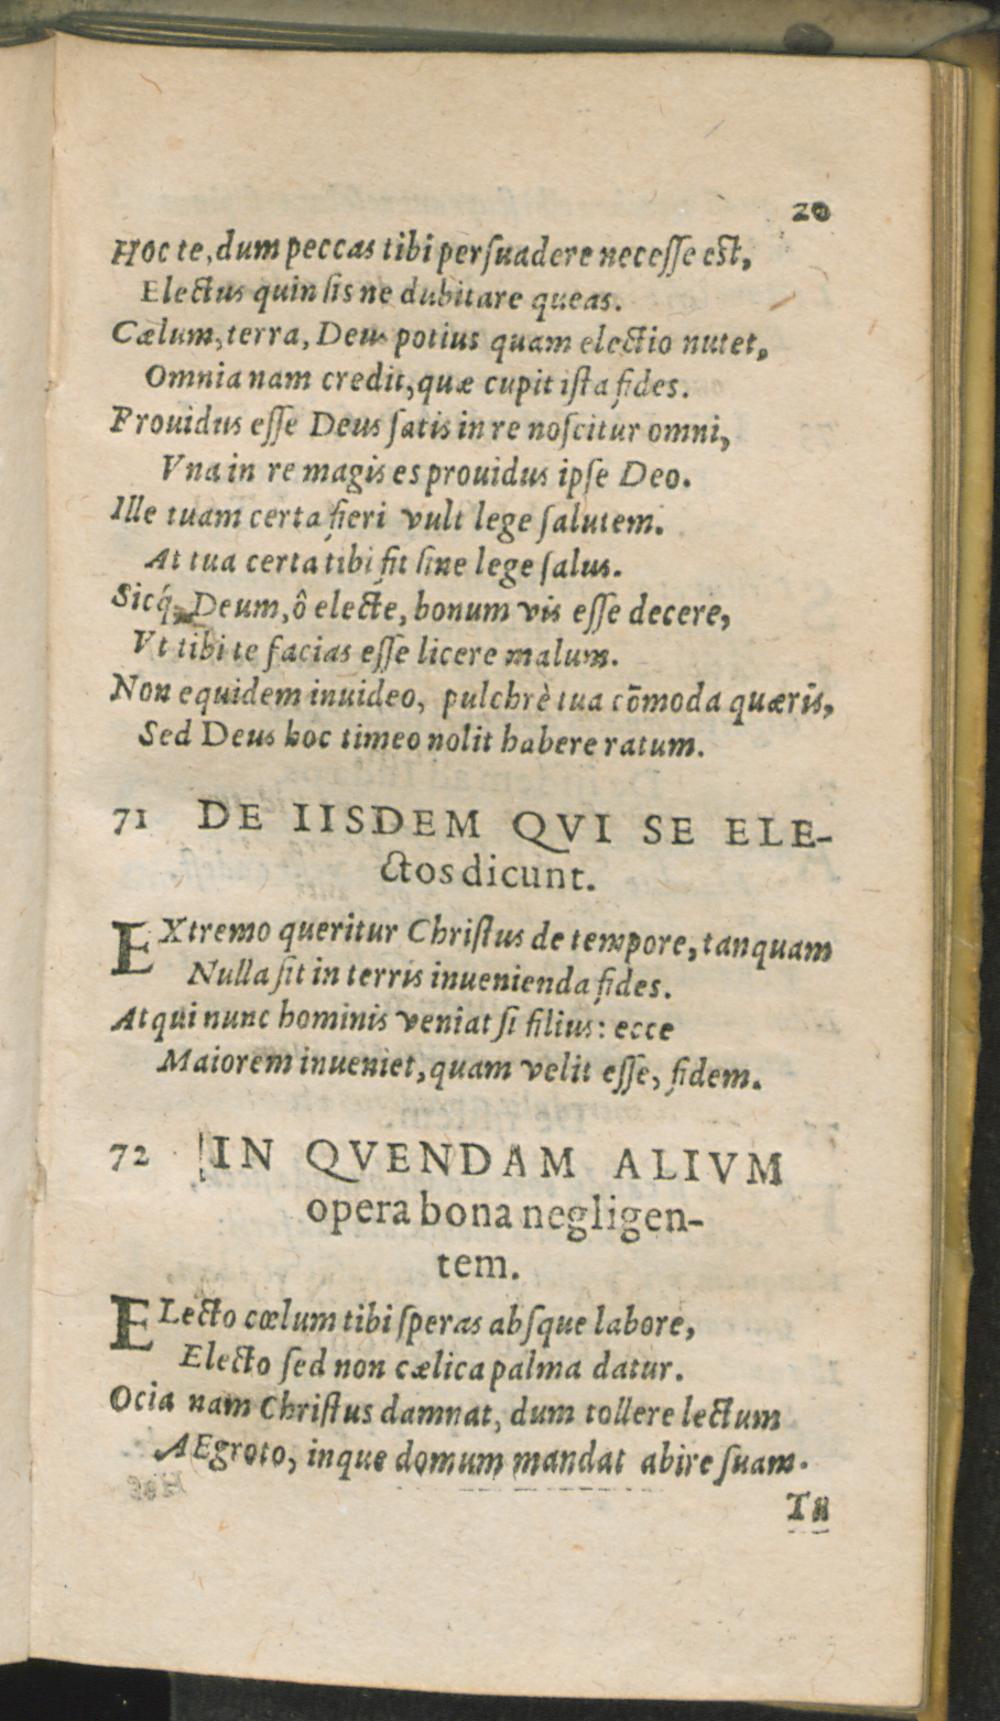 20
Hoc te, dum peccas tibi perſuadere neceſſe est,
Electus quin ſis ne dubitare queas.
Cælum, terra, Deus potius quam electio nutet,
Omnia nam credit, quæ cupit iſta fides.
Prouidus eſſe Deus ſatis in re noſcitur omni,
Vna in re magis es prouidus ipſe Deo.
Ille tuam certa fieri vult lege ſalutem.
At tua certa tibi fit ſine lege ſalus.
Sicq́; Deum, ô electe, bonum vis eſſe decere,
Vt tibi te facias eſſe licere malum.
Non equidem inuideo, pulchrè tua cōmoda quæris,
Sed Deus hoc timeo nolit habere ratum.
71 DE IISDEM QVI SE ELE-
ctos dicunt.
EXtremo queritur Chriſtus de tempore, tanquam
Nulla ſit in terris inuenienda fides.
Atqui nunc hominis veniat ſi filius: ecce
Maiorem inueniet, quam velit eſſe, fidem.
72 IN QVENDAM ALIVM
opera bona negligen-
tem.
ELecto cœlum tibi ſperas abſque labore,
Electo ſed non cælica palma datur.
Ocia nam Chriſtus damnat, dum tollere lectum
AEgroto, inque domum mandat abire ſuam.
Tu